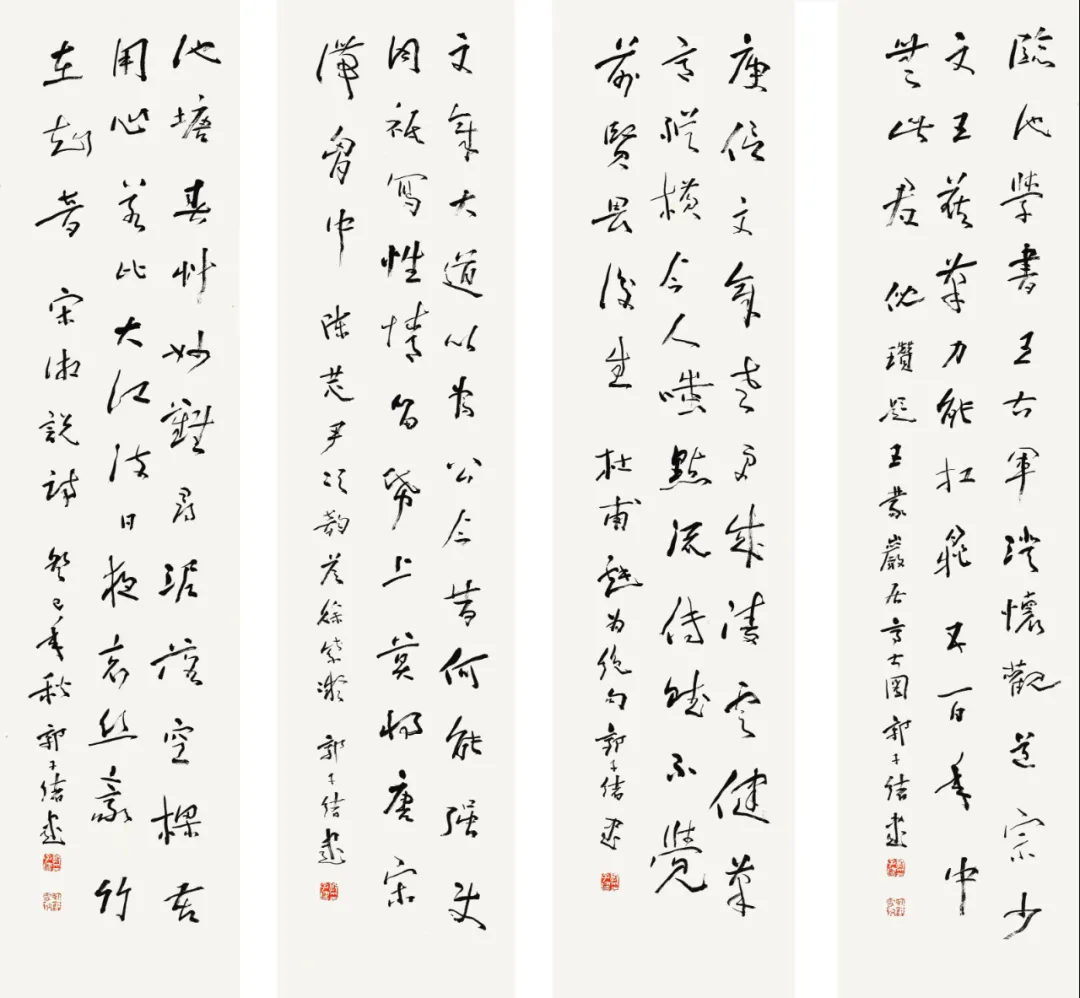 臨池學書王右軍澄懷觀道宗少
文王侯筆力能扛鼎五百年中
無此君 倪瓚題王蒙巖居高士圖 郭子緒書
庾信文章老更成凌雲健筆
意縱橫今人嗤點流傳賦不覺
前賢畏後生 杜甫戲為絕句 郭子緒書
文章大道以為公今昔何能強使
同祗寫性情留帋上莫將唐宋
滯胸中 陳恭尹次韻答徐紫凝 郭子緒書
池塘春艸妙難尋泥落空梁苦
用心若比大江流日夜哀絲豪竹
在知音 宋湘說詩 癸巳年秋郭子緒書